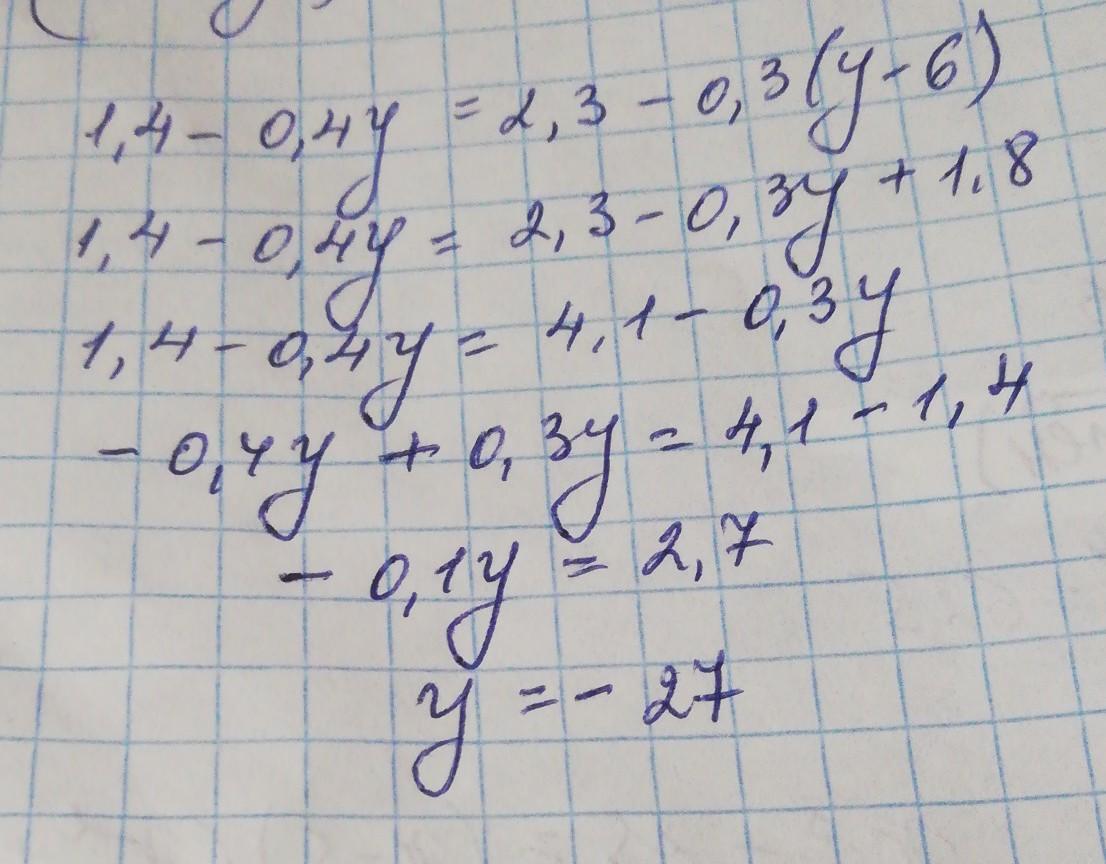 1,4 - 0,4y = 2,3 - 0,3(y - 6)
1,4 - 0,4y = 2,3 - 0,3y + 1,8
1,4 - 0,4y = 4,1 - 0,3y
- 0,4y + 0,3y = 4,1 - 1,4
- 0,1y = 2,7
y = - 27